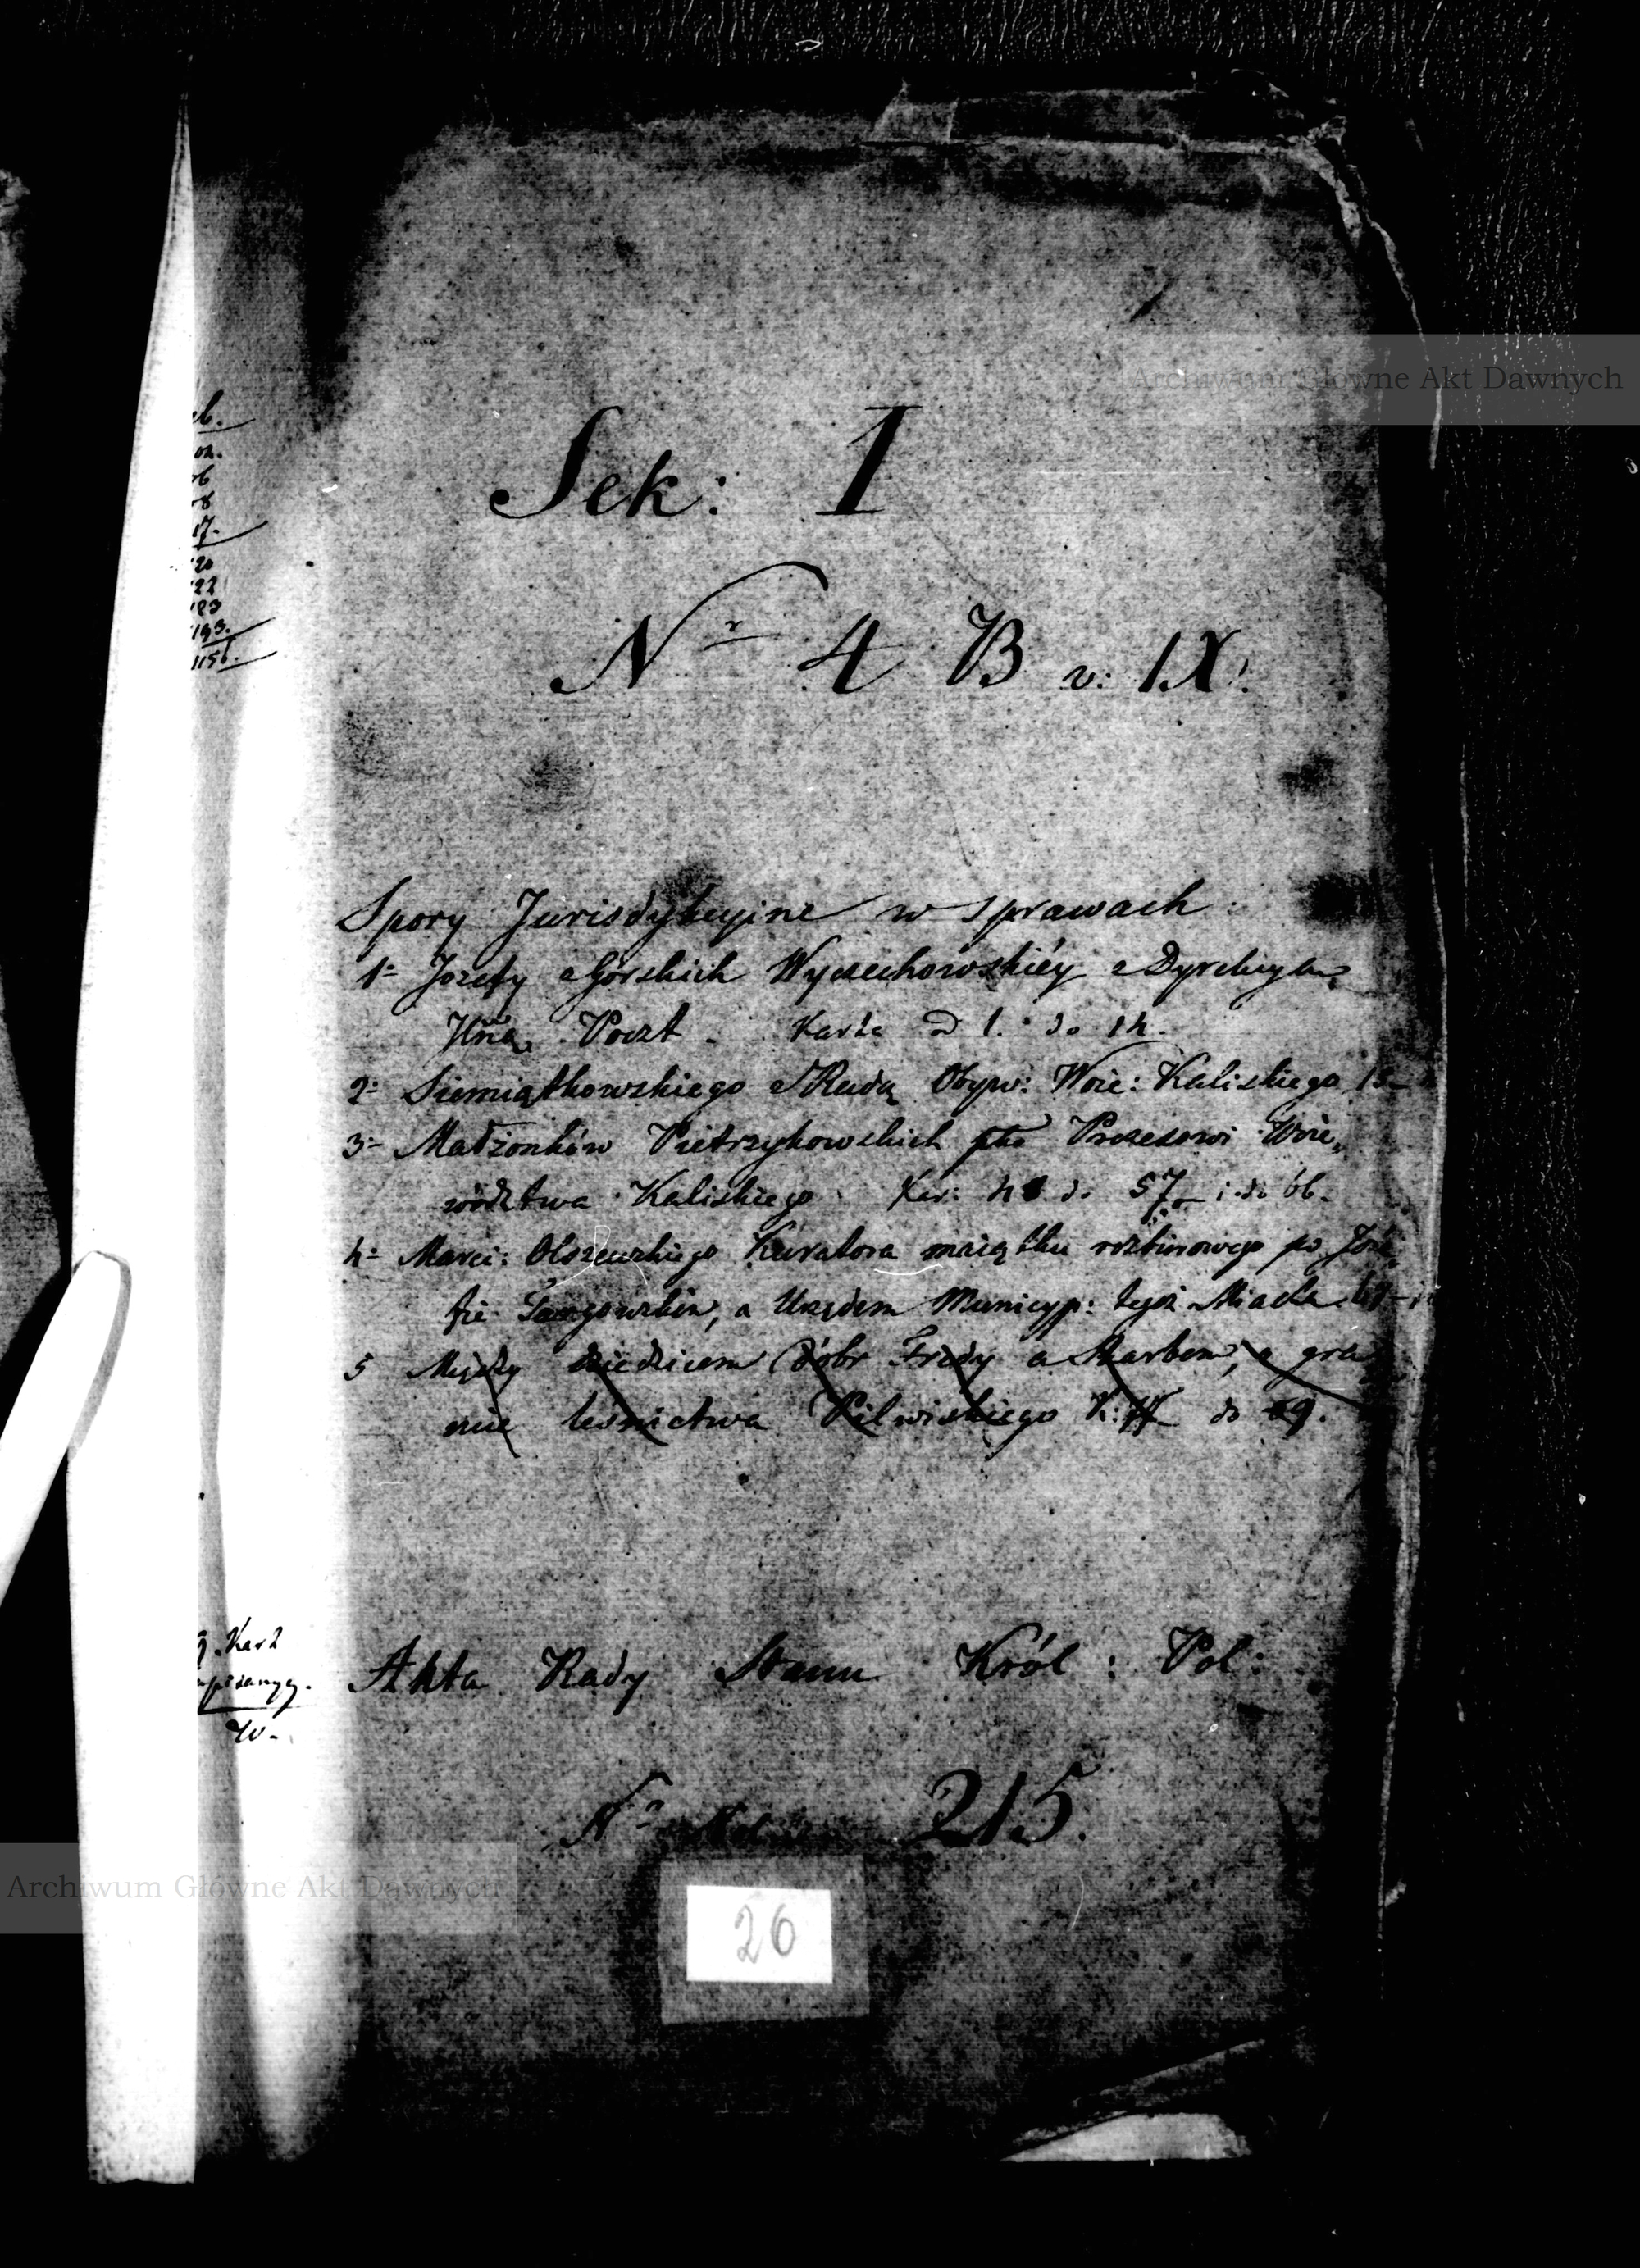 Archiwum Główne Akt Dawnych
Sek: 1
Nr 4 B v: IX.
Spory Jurisdykcyine w sprawach
1= Jozefy z Górskich Wyczechowskiéy z Dyrekcyą
Poczt. Karta od 1. do 14.
2= Siemiątkowskiego z Radą Obyw: Woie: Kaliskiego 15
3= Małżonków Pietrzykowskich pko Prezesowi Woie„
wództwa Kaliskiego Kar: do 57 i do 66.
4= Marci: Olszewskiego Kuratora maiątku po Józe„
fie a Urzędem Municyp: tegoż Miasta
5 Między dziedzicem dóbr Fredy a Skarbem, o gra
nie leśnictwa Pilwiskiego K: do 89.
Akta Rady Stanu Król: Pol:
No 215.
26
Archiwum Główne Akt Dawnych
b.
02.
06
08
17.
20
22
193.
1156.
Kart
W.